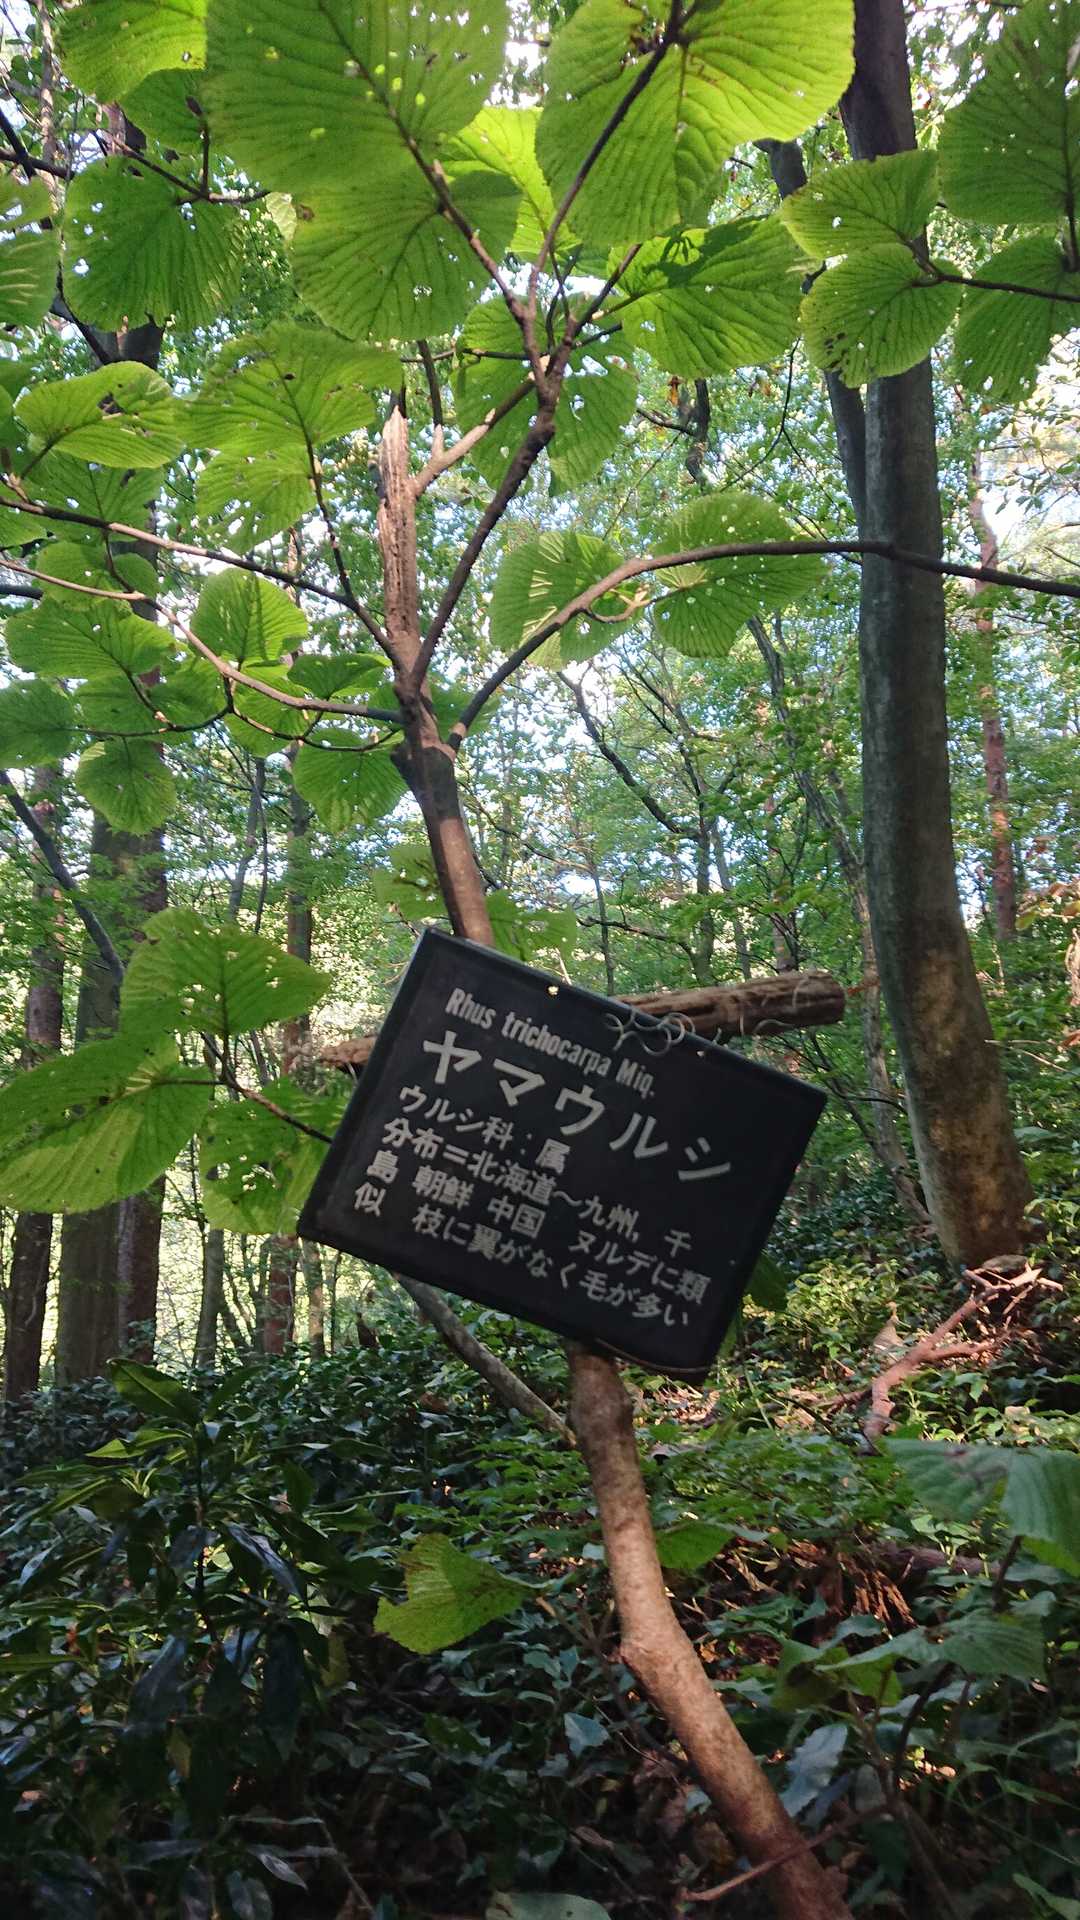 Rhus trichocarpa Miq.
ヤマウルシ
ウルシ科:属
分布=北海道〜九州, 千
島 朝鮮 中国 ヌルデに類
似 枝に翼がなく毛が多い